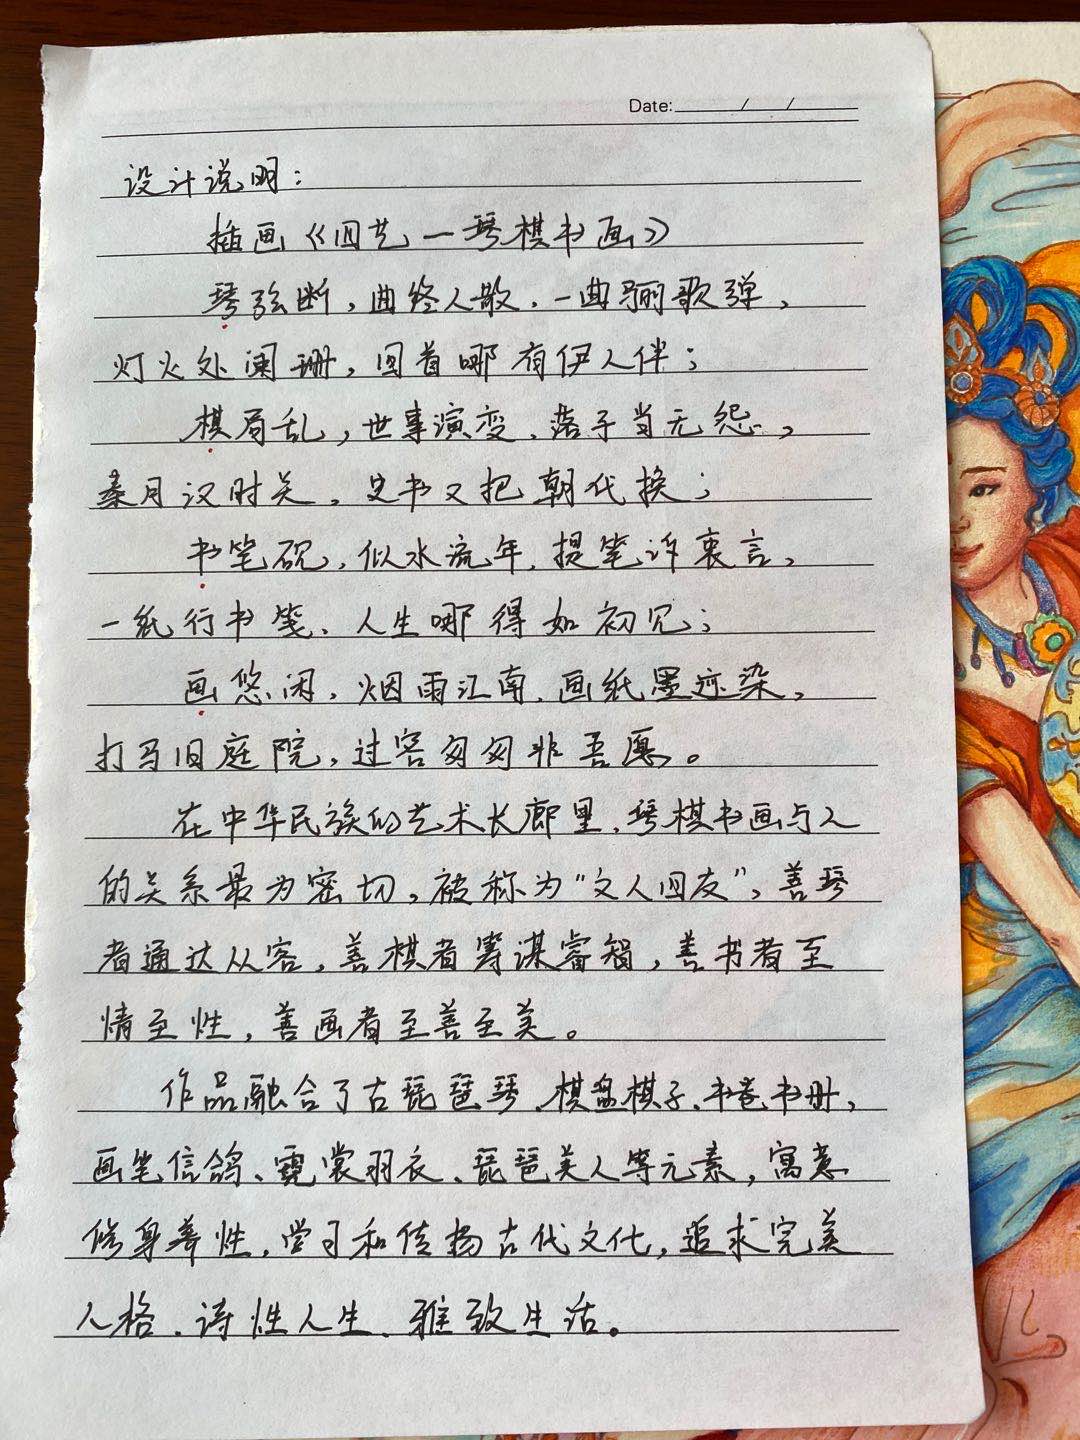 Date: / /
设计说明：
插画《四艺一琴棋书画》
琴弦断，曲终人散，一曲骊歌弹，
灯火处阑珊，回首哪有伊人伴；
棋局乱，世事演变，落子当无怨，
秦月汉时关，史书又把朝代换；
书笔砚，似水流年，提笔诉衷言，
一纸行书笺，人生哪得如初见；
画悠闲，烟雨江南，画纸墨迹染，
打马旧庭院，过客匆匆非吾愿。
在中华民族的艺术长廊里，琴棋书画与人
的关系最为密切，被称为“文人四友”，善琴
者通达从容，善棋者筹谋睿智，善书者至
情至性，善画者至善至美。
作品融合了古琵琶琴、棋盘棋子、书卷书册，
画笔信鸽、霓裳羽衣、琵琶美人等元素，寓意
修身养性，学习和传扬古代文化，追求完美
人格、诗性人生、雅致生活。